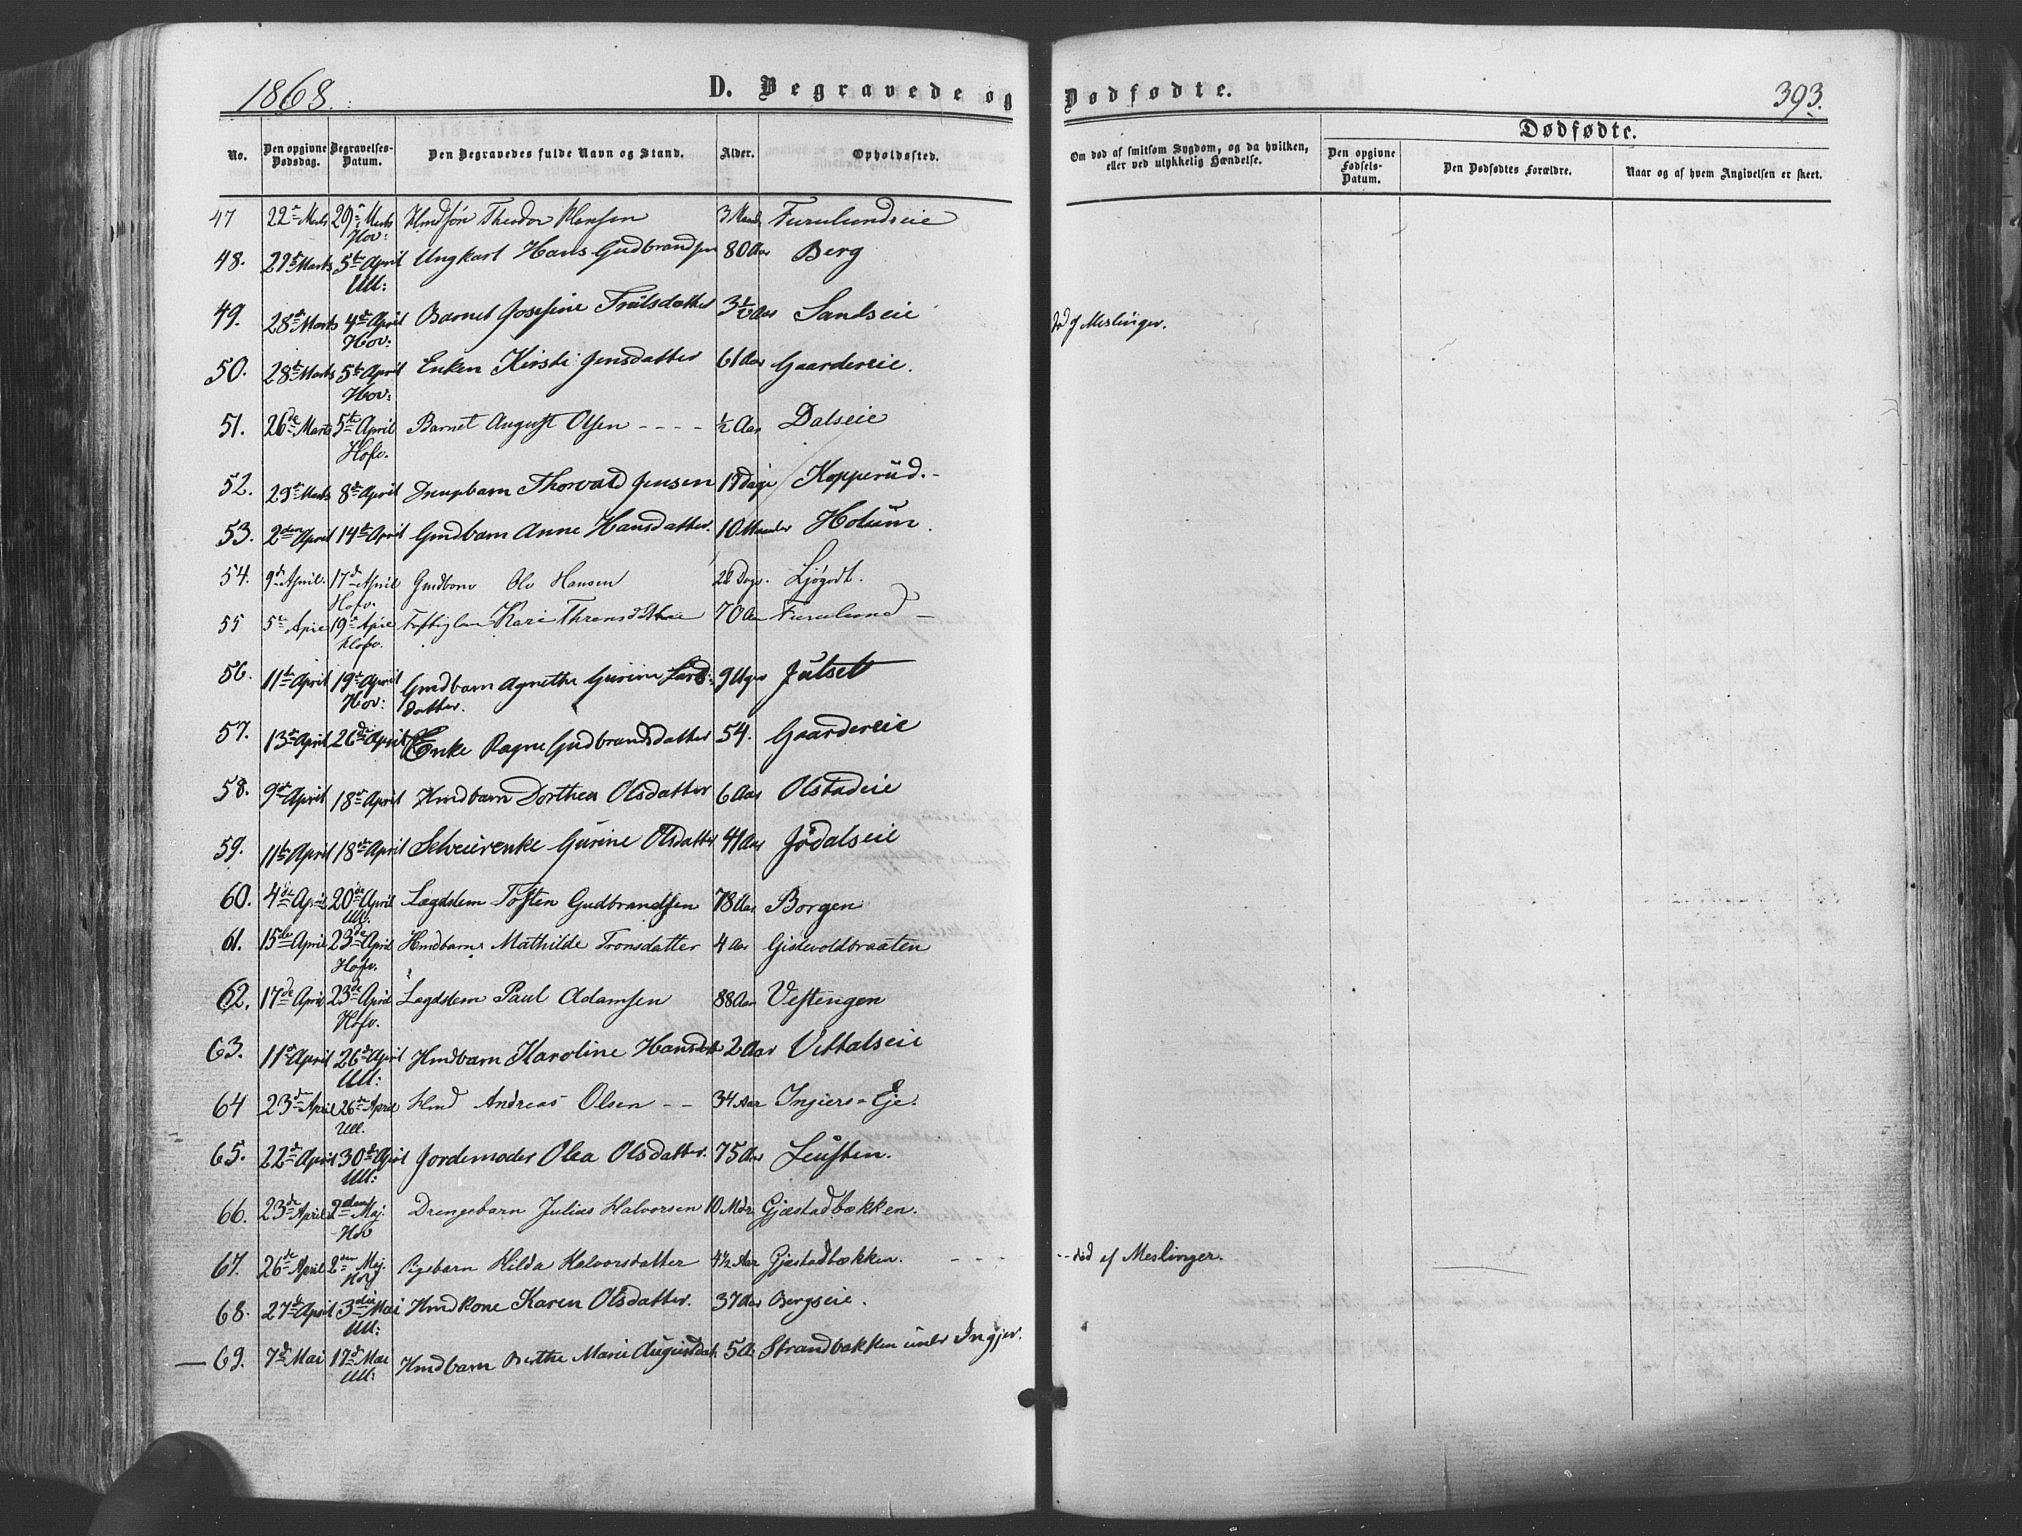 1868. D. Begravede og Dødfødte. 393.
No. Den opgivne Dødsdag. Begravelses-Datum. Den Begravedes fulde Navn og Stand. Alder. Opholdssted. Om død af smitsom Sygdom, og da hvilken, eller ved ulykkelig Hændelse. Dødfødte. Den opgivne Fødsels-Datum. Den Dødfødtes Forældre. Naar og af hvem Angivelsen er skeet.
47 22de Marts 29de Marts Hov: Theodor 3 Furulundseie
48. 29de Marts 5te April Ull: Ungkarl Hans Gudbrandsen 80 Aar Berg
49. 28de Marts 4de April Hov: Barnet Josefine 3½ Aar Sandseie død af Meslinger.
50. 28de Marts 5te April Hov: Enken Kirsti Jensdatter 61 Aar Gaardereie.
51. 26de Marts 5te April Hofv. Barnet August Olsen - - - - ½ Aar Dalseie
52. 29de Marts 8de April Drengebarn Thorvald Jensen 19 Dage Kopperud.-
53. 2den April 14de April Gmdbarn Anne Hansdatter. 10 Maaneder Holum.
54. 9de April. 17de April Hofv. Gmdbarn Ole Hansen 22 Dage. Ljøgodt.
55 5te April 19de April Hofv. Kari 70 Aar Furulund -
56. 11te April 19de April Hov: Gmdbarn Agnethe Gurine Larsdatter. 9 Uger Julset
57. 13de April 26de April Enke Ragne Gudbrandsdatter 54. Gaardereie
58. 9de April 18de April Hmdbarn Dorthea Olsdatter 6 Aar Olstadeie
59. 11te April 18de April Selveierenke Gurine Olsdatter 41 Aar Jødalseie
60. 4de April 20de April Ull. Lægdslem Tosten Gudbrandsen 78 Aar Borgen
61. 15de April 23de April Hofv. Hmdbarn Mathilde Tronsdatter 4 Aar Gistevoldbraaten
62. 17de April 23de April Hofv. Lægdslem Paul Adamsen 88 Aar Vestengen
63. 11te April 26de April Ull: Hmdbarn Karoline Hansdatter 2 Aar Vittalseie
64 23de April 26de April Ull. Hmd Andreas Olsen - - 34 Aar Ingiers-Eje.
65. 22de April 30te April Ull: Jordemoder Olea Olsdatter. 75 Aar Leusten.
66. 23de April 2den Maj. Hov Drengebarn Julius Halvorsen 10 Mdr. Gjæstadbækken.
67. 26de April 2den Maj. Hov Pigebarn Hilda Halvorsdatter 4½ Aar Gjæstadbækken. - - - -- død af Meslinger.
68. 27de April 3die Mai Ull: Hmdkone Karen Olsdatter. 37 Aar Bergseie.
69. 7de Mai 17de Mai Ull: Hmdbarn Berthe Marie Augustdatt. 5 A Strandbakken under Ingjer.